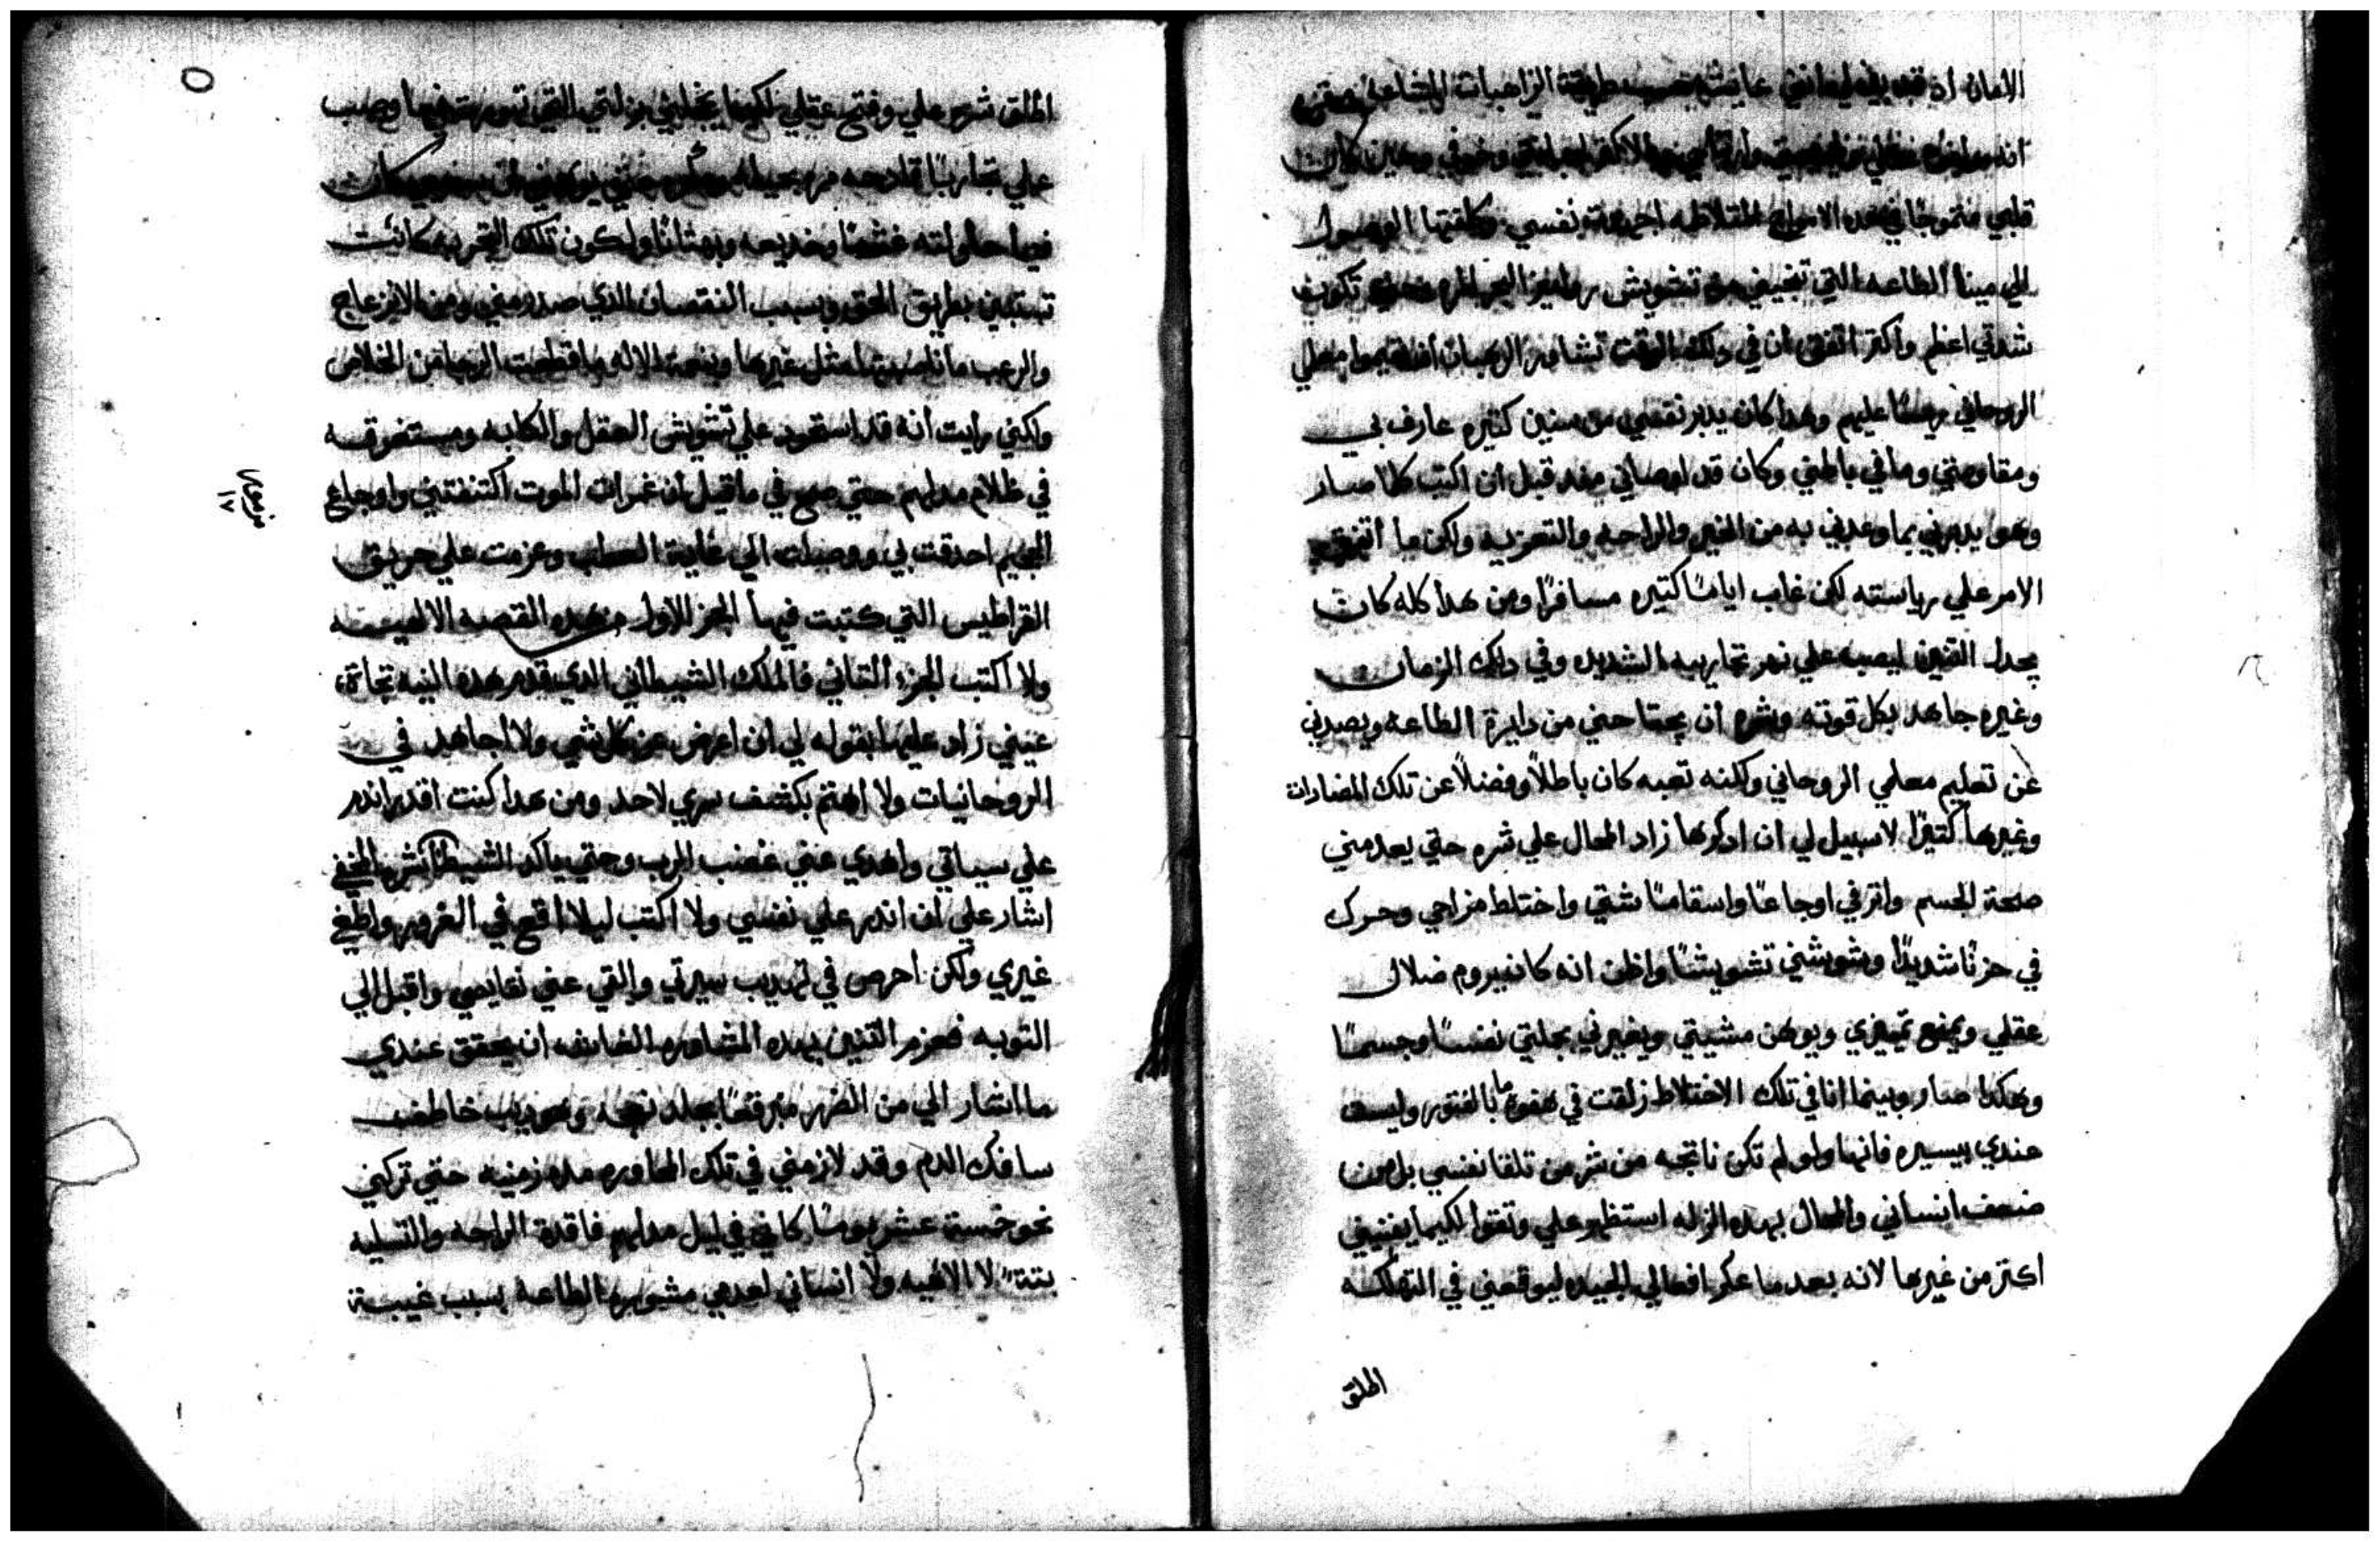 الامان اد قد بقيه عايشه بحسب طريقة الراهبات
انه وخوفي وحين كان
قلبي متموجًا في هده الامواج المتلاطه اجهدت نفسي وكلفتها الوصول
الي مينا الطاعه التي تنجيني من تشويش رواميز البحر المر تكون
شدتي اعظم واكتر اتفق ان في دلك الوقت تشاور الرهبان معلمي
الروحاني ريسًا عليهم وهدا كان يدبر نفسي من سنين كتيره عارف بي
ومقاومتي وما في باطني وكان قد اوصاني مند قبل ان اكتب كلما صار
وهو يدبرني بما وعدني به من الخير والراحه والتعزيه ولكن ما اتفق
الامر علي رياسته لكن غاب ايامًا كتيره مسافرًا ومن هدا كله كان
يجدل التنين ليصب علي نهر تجاربه الشديده وفي دلك الزمان
وغيره جاهد بكل قوته وشره ان يجتاحني من دايرة الطاعه ويصدني
عن تعليم معلمي الروحاني ولكنه تعبه كان باطلاً وفضلاً عن تلك المضادات
وغيرها كتيرًا لا سبيل لي ان ادكرها زاد المحال علي شره حتي يعدمني
صحة الجسم واتر في اوجاعًا واسقامًا شتي واختلط مزاجي وحرك
في حزنًا شديدًا وشوشني تشويشًا واظن انه كان يروم ضلال
عقلي ويمنع تمييزي ويوهن مشيتي ويغيرني بجملتي نفسًا وجسمًا
وهكدا صار وبينما انا في تلك الاختلاط زلقت في هفوه ما بالفتور وليست
عندي بيسيره فانها ولو لم تكن ناتجه من شر من تلقا نفسي بل من
ضعف انساني والمحال بهده الزله استظهر علي وتقوا لكيما يفنيني
اكتر من غيرها لانه بعد ما عكر افعالي الجيده ليوقعني في التهلكه
الملق
الملق شره علي وفتح عقلي لكيما يخليني بزلتي التي تهورت فيها وصب
علي تجاربًا قادحه مره بحيله كانت
فيما حاولته غشًا وخديعه وبهتانًا ولكون تلك التجربه كانت
تستبين بطريق الحق وبسبب النقصان الدي صدر مني ومن الانزعاج
والرعب ما ناصبتها مثل غيرها وبنعمة الاله ما قطعت الرجا من الخلاص
ولكني رايت انه قد استحود علي تشويش العقل والكابه ومستغرقه
في ظلام مدلهم حتي صح في ما قيل ان غمرات الموت اكتنفتني واوجاع
الجحيم احدقت بي ووصلت الي غاية العطب وعزمت علي حريق
القراطيس التي كتبت فيها الجز الاول من هده القصه الالهيه
ولا اكتب الجزء التاني فالملك الشيطاني الدي قدم هده النيه تجاة
عيني زاد عليها بقوله لي ان اعرض عن كل شي ولا اجاهد في
الروحانيات ولا اهتم بكشف سري لاحد ومن هدا كنت اقدر اندم
علي سياتي واهدي عني غضب الرب وحتي ياكد الشيطان شره المخفي
اشار علي ان اندر علي نفسي ولا اكتب ليلا اقع في الغرور واطغي
غيري ولكن احرص في تهديب سيرتي والقي عني نقايصي واقبل الي
التوبه فعزم التنين بهده المشاوره الغاشه ان يحقق عندي
ما اشار الي من الضرر متبرقعًا بجلد نعجه وهو ديب خاطف
سافك الدم وقد لازمني في تلك المحاوره مده زمنيه حتي تركني
نحو خمسة عشر يومًا كاني في ليل مدلهم فاقدة الراحه والتسليه
بتتةً لا الاهيه ولا انساني لعدمي مشورة الطاعه بسبب غيبة
مزمور
١٧